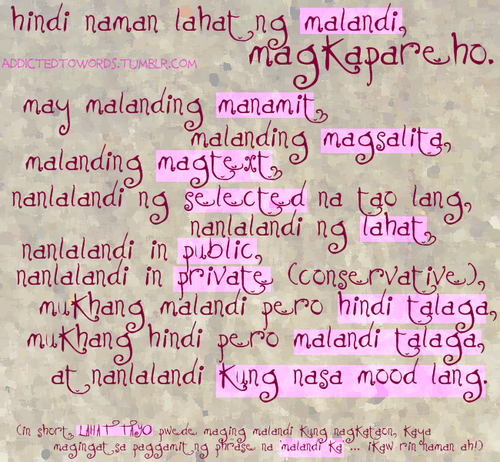 hindi naman lahat ng malandi,
magkapareho.
ADDICTEDTOWORDS.TUMBLR.COM
may malanding manamit,
malanding magsalita,
malanding magtext,
nanlalandi ng selected na tao lang,
nanlalandi ng lahat,
nanlalandi in public,
nanlalandi in private (conservative),
mukhang malandi pero hindi talaga,
mukhang hindi pero malandi talaga,
at nanlalandi kung nasa mood lang.
(in short, LAHAT TAYO pwede maging malandi kung nagkataon, kaya
magingat sa paggamit ng phrase na 'malandi ka'... ikaw rin naman ah!)